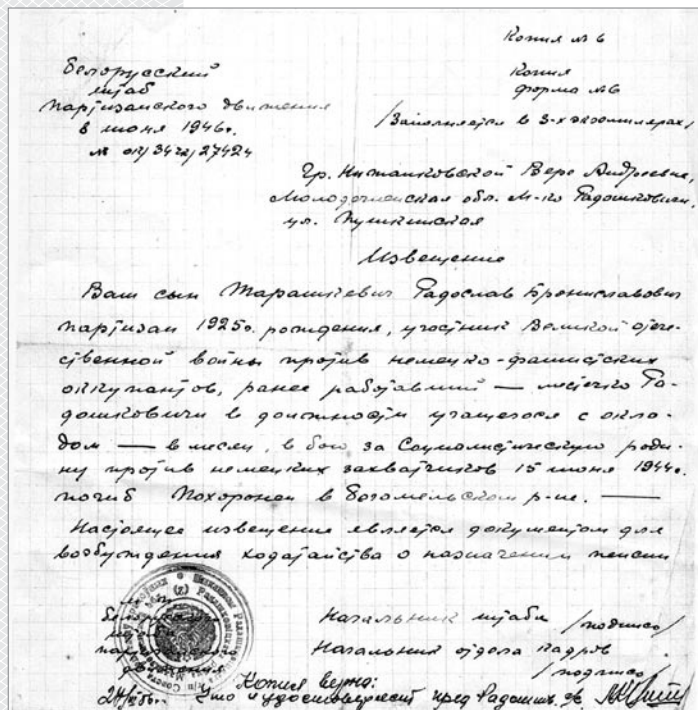 Копия № 6
Белорусский
штаб
партизанского движения
8 июня 1946г.
№ 3422/27424
Копия
форма №6
/Заполняется в 3-х экземплярах/
Гр. Нижанковской Вере Андреевне,
Молодечненская обл. М-ко Радошковичи,
ул. Пушкинская
Извещение
Ваш сын Тарашкевич Радослав Брониславович
партизан 1925г. рождения, участник Великой отече-
ственной войны против немецко-фашистских
оккупантов, ранее работавший — местечко Ра-
дошковичи в должности учащегося с окла-
дом — в месяц, в бою за Социалистическую роди-
ну против немецких захватчиков 15 июня 1944г.
погиб Похоронен в Бегомельском р-не. —
Настоящее извещение является документом для
возбуждения ходатайства о назначении пенсии
Начальник штаба /подпись/
Начальник отдела кадров
/подпись/
Копия верна:
Что и удостоверяет пред Радошк.